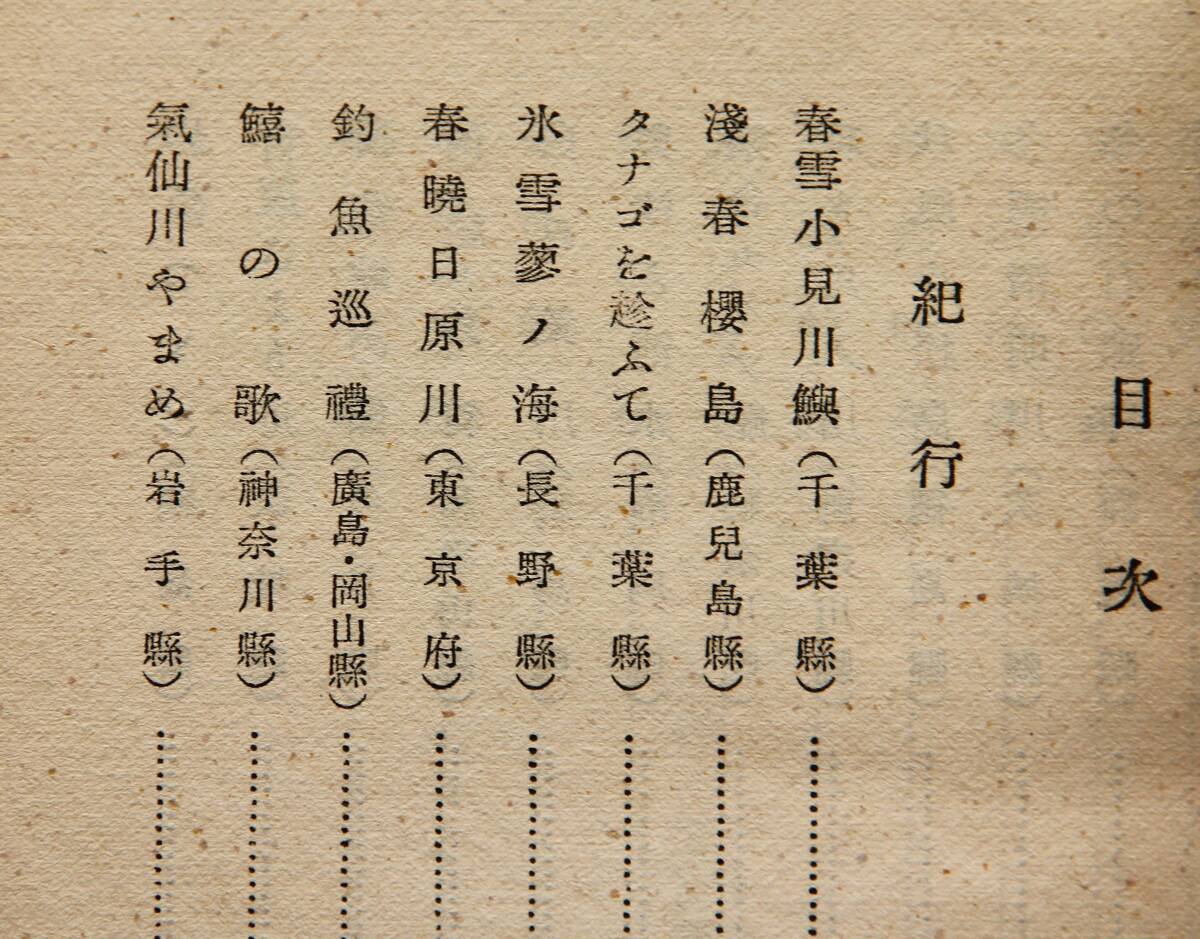 目次
紀行
春雪小見川鱮(千葉縣)………
淺春櫻島(鹿兒島縣)………
タナゴを趁ふて(千葉縣)………
氷雪蓼ノ海(長野縣)………
春曉日原川(東京府)………
釣魚巡禮(廣島・岡山縣)………
鱚の歌(神奈川縣)………
氣仙川やまめ(岩手縣)………